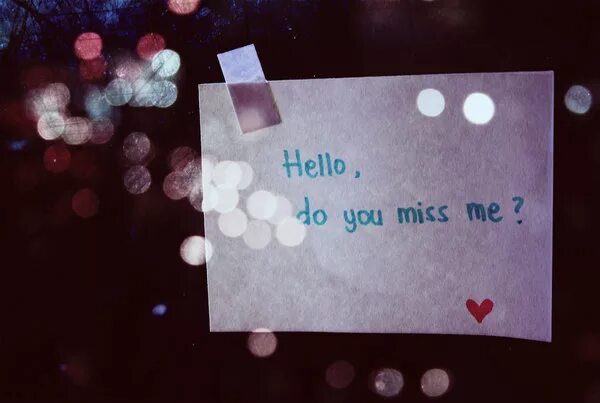 Hello,
do you miss me?